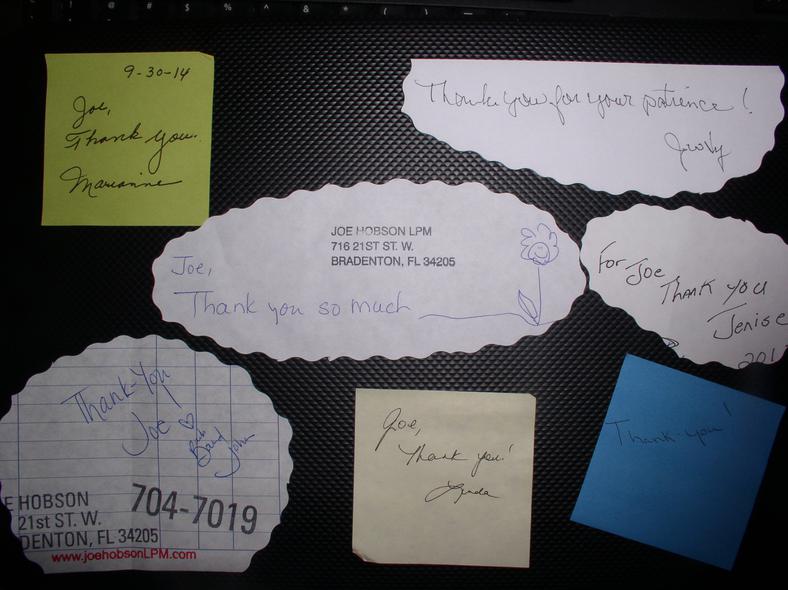 9-30-14
Joe,
Thank you.
Marianne
Thank you for your patience!
JOE HOBSON LPM
716 21ST ST. W.
BRADENTON, FL 34205
Joe,
Thank you so much
For Joe
Thank you
Jenise
201
Thank-You
Joe
John
E HOBSON
21st ST. W.
DENTON, FL 34205
704-7019
www.joehobsonLPM.com
Joe,
Thank you!
Linda
Thank-you!